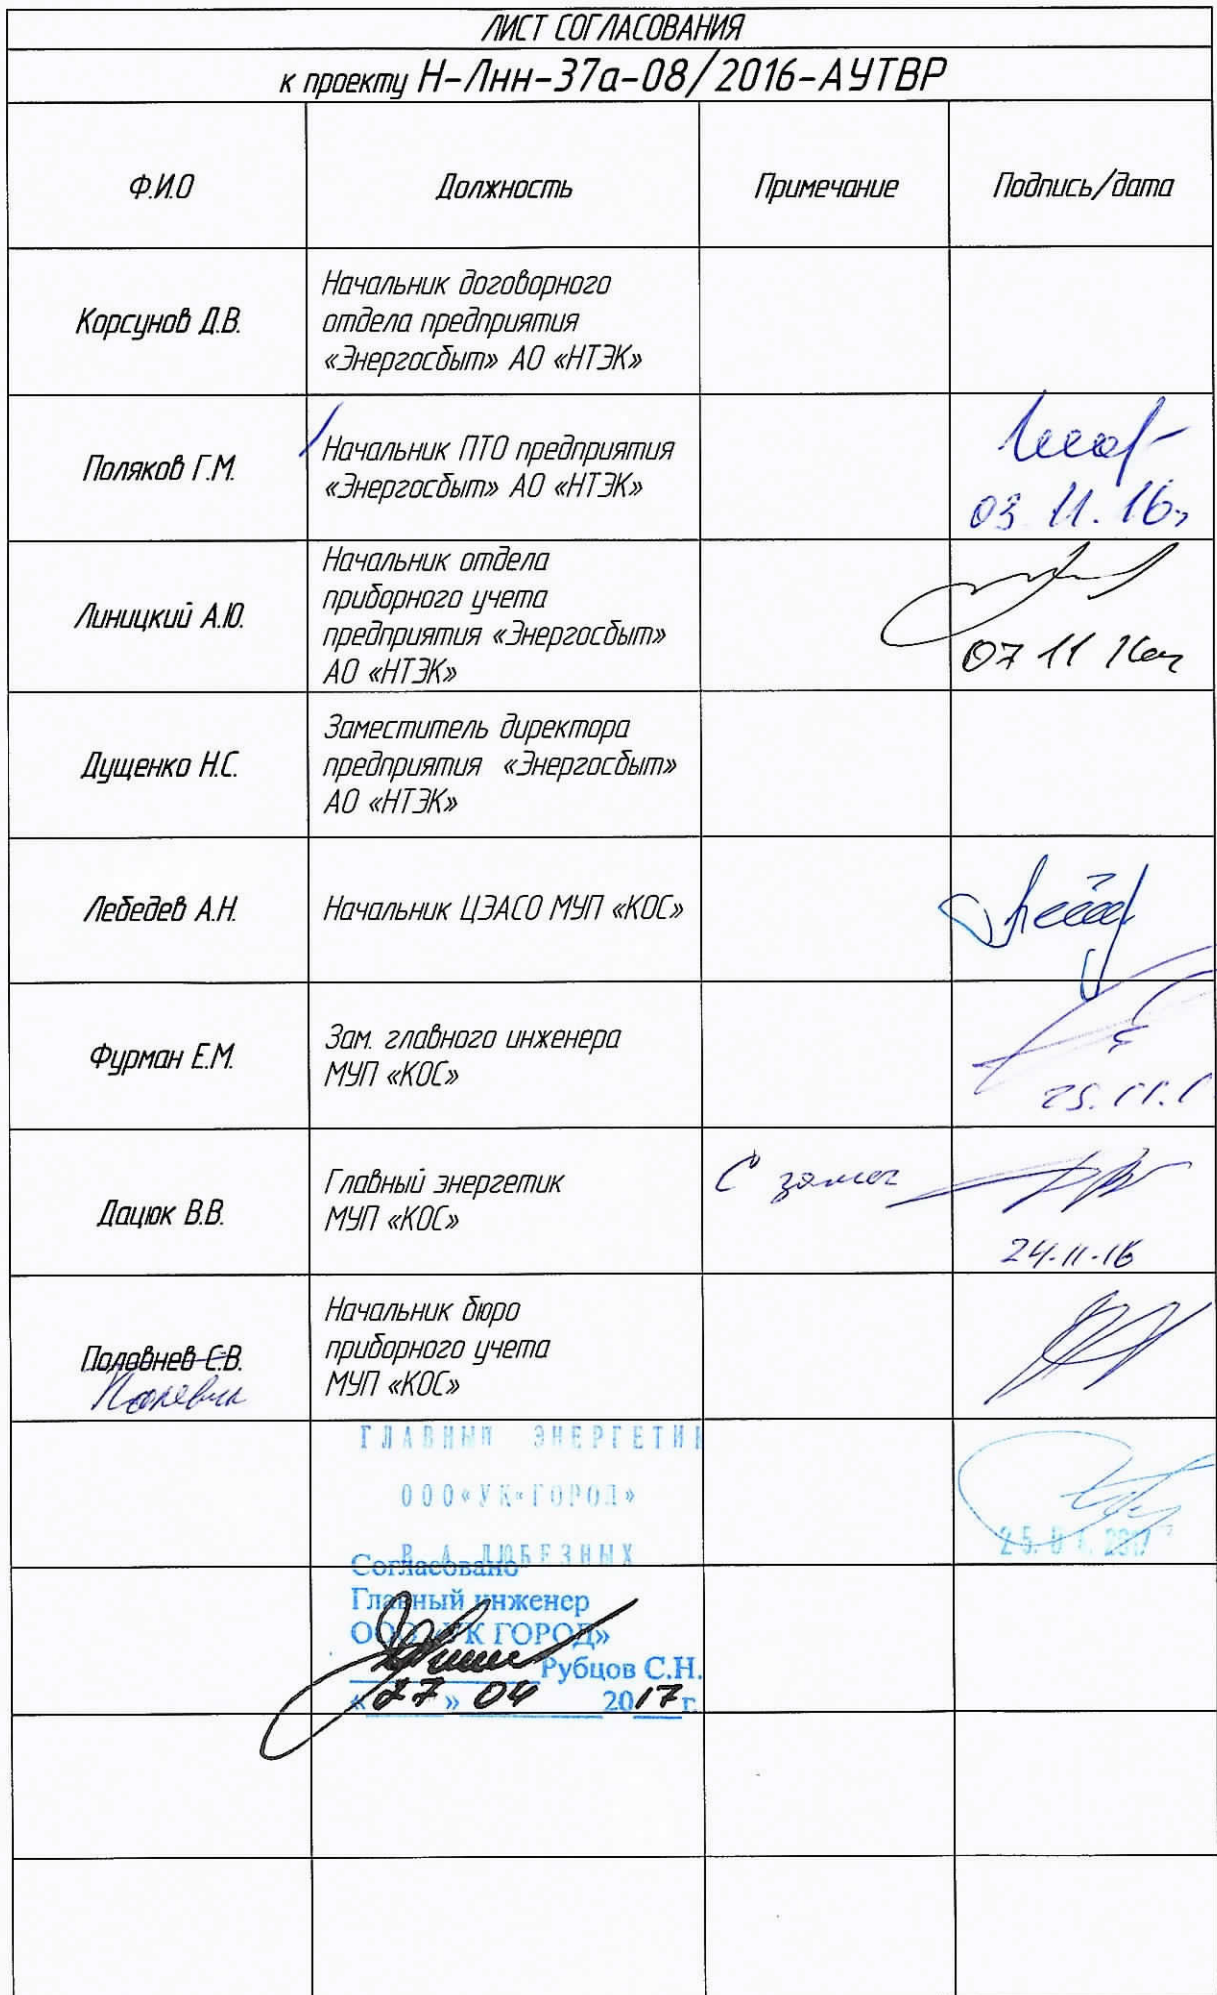 ЛИСТ СОГЛАСОВАНИЯ
к проекту Н-Лнн-37а-08/2016-АУТВР
Ф.И.О Должность Примечание Подпись/дата
Корсунов Д.В.
Начальник договорного
отдела предприятия
«Энергосбыт» АО «НТЭК»
Поляков Г.М.
Начальник ПТО предприятия
«Энергосбыт» АО «НТЭК»
03 11. 16г
Линицкий А.Ю.
Начальник отдела
приборного учета
предприятия «Энергосбыт»
АО «НТЭК»
07 11 16г
Дущенко Н.С.
Заместитель директора
предприятия «Энергосбыт»
АО «НТЭК»
Лебедев А.Н.
Начальник ЦЭАСО МУП «КОС»
Фурман Е.М.
Зам. главного инженера
МУП «КОС»
25.11.1
Дацюк В.В.
Главный энергетик
МУП «КОС»
С замеч
24.11.16
Половнев С.В.
Начальник бюро
приборного учета
МУП «КОС»
ГЛАВНЫЙ ЭНЕРГЕТИК
ООО«УК«ГОРОД»
В.А. ЛЮБЕЗНЫХ
2017
Согласовано
Главный инженер
ООО «УК ГОРОД»
Рубцов С.Н.
«27» 04 2017г.